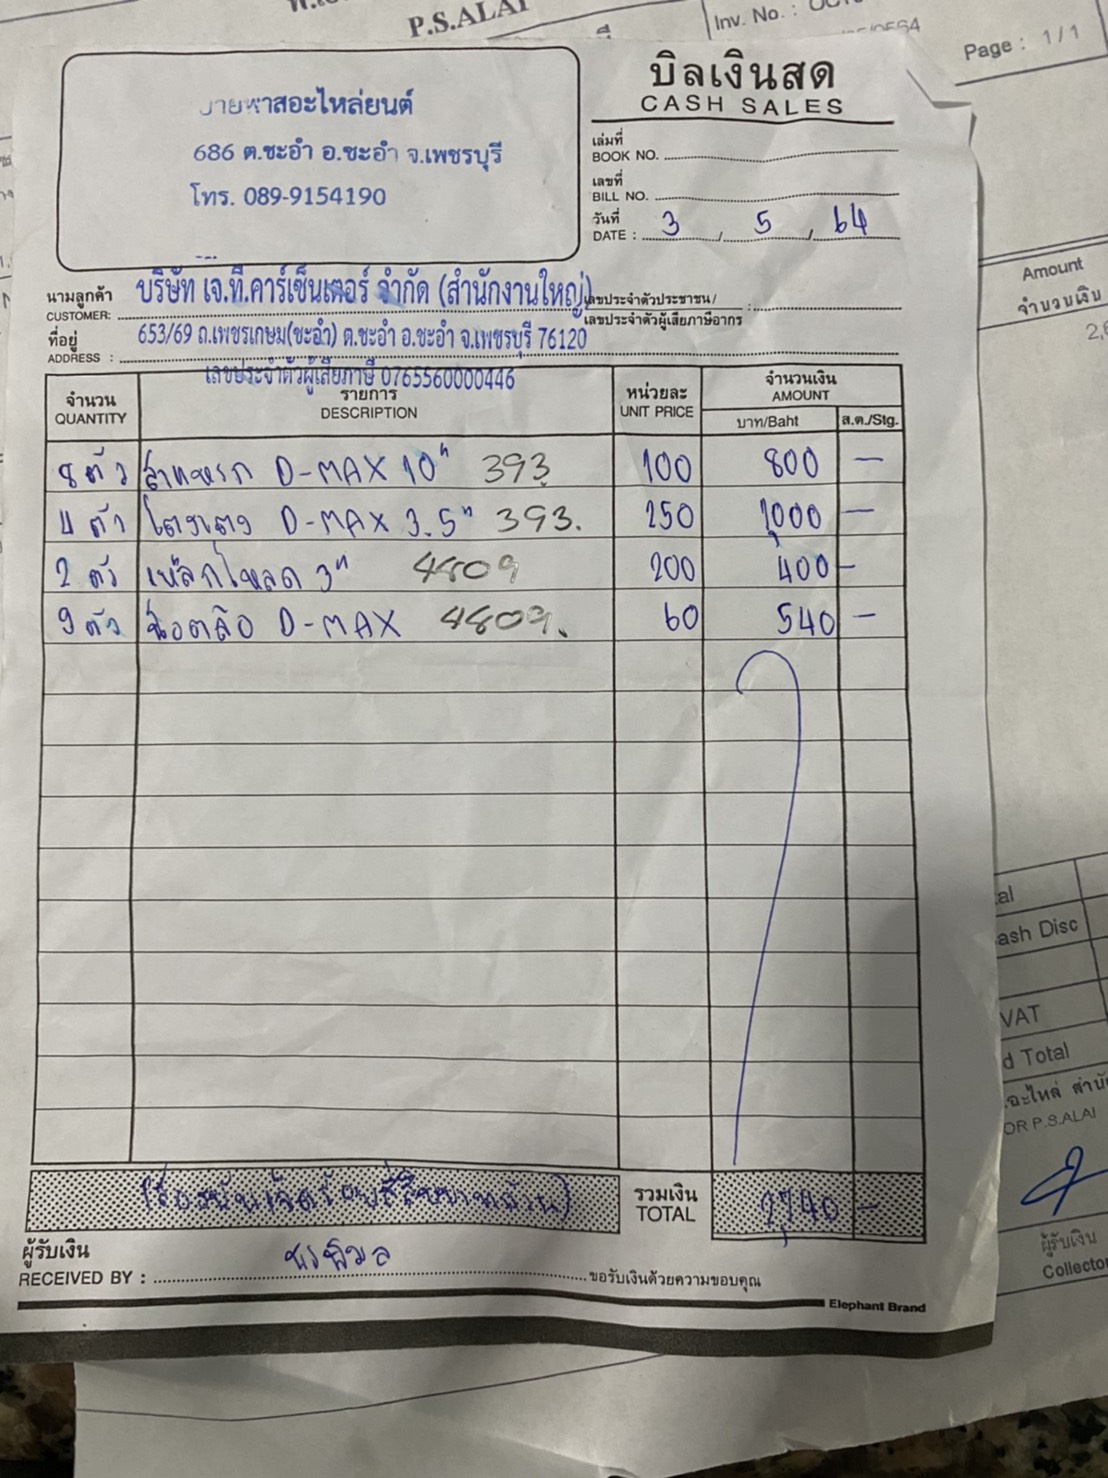 P.S.ALAI
Inv. No. :
Page : 1 / 1
บิลเงินสด
CASH SALES
อะไหล่ยนต์
686 ต.ชะอำ อ.ชะอำ จ.เพชรบุรี
โทร. 089-9154190
เล่มที่
BOOK NO.
เลขที่
BILL NO.
วันที่
DATE : 3 / 5 / 64
นามลูกค้า บริษัท เจ.ที.คาร์เซ็นเตอร์ จำกัด (สำนักงานใหญ่)
CUSTOMER:
เลขประจำตัวประชาชน/
เลขประจำตัวผู้เสียภาษีอากร :
ที่อยู่ 653/69 ถ.เพชรเกษม(ชะอำ) ต.ชะอำ อ.ชะอำ จ.เพชรบุรี 76120
ADDRESS :
เลขประจำตัวผู้เสียภาษี 0765560000446
จำนวน รายการ หน่วยละ จำนวนเงิน
QUANTITY DESCRIPTION UNIT PRICE AMOUNT
บาท/Baht ส.ต./Stg.
8 ตัว D-MAX 10" 393 100 800 -
4 ตัว โตงเตง D-MAX 3.5" 393. 250 1000 -
2 ตัว เหล็กโหลด 3" 4809 200 400 -
9 ตัว D-MAX 4809. 60 540 -
(สองพันเจ็ดร้อยสี่สิบบาทถ้วน) รวมเงิน 2,740 -
TOTAL
ผู้รับเงิน
RECEIVED BY : ขอรับเงินด้วยความขอบคุณ
Elephant Brand
Amount
จำนวนเงิน
ash Disc
VAT
d Total
OR P.S.ALAI
ผู้รับเงิน
Collector